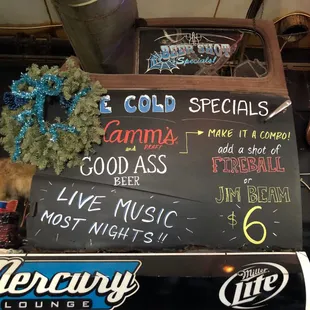 BEER SHOT
Specials!
E COLD SPECIALS
Camm's
GOOD ASS
BEER
LIVE MUSIC
MOST NIGHTS!!
MAKE IT A COMBO!
add a shot of
FIREBALL
or
JIM BEAM
$6
Mercury
LOUNGE
Miller
Lite